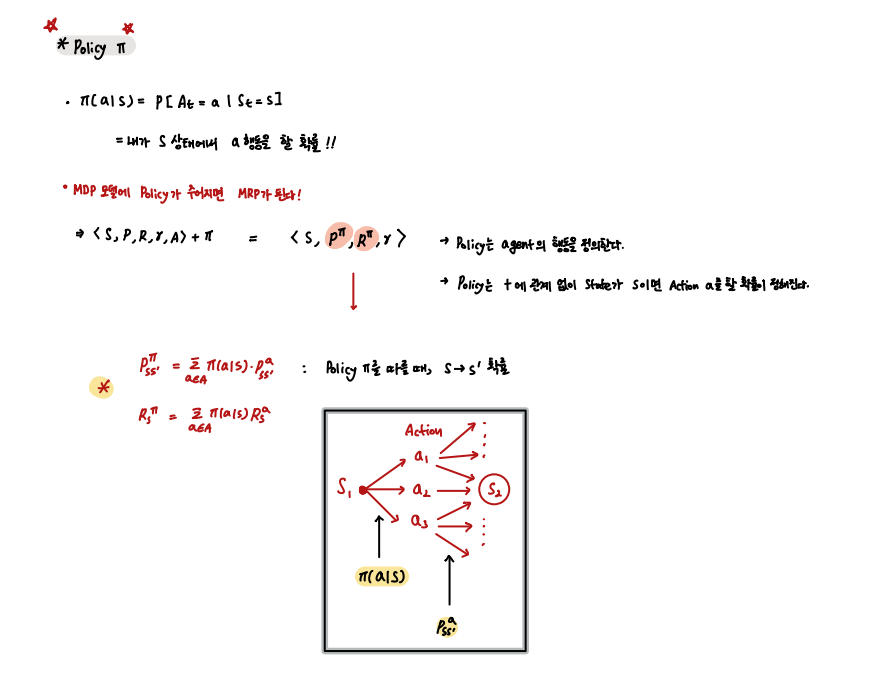 * Policy π
• π(a|s) = P[At = a | St = s]
= 내가 S 상태에서 a 행동을 할 확률!!
• MDP 모델에 Policy가 주어지면 MRP가 된다!
⇒ <S, P, R, γ, A> + π = <S, P^π, R^π, γ>
→ Policy는 agent의 행동을 정의한다.
→ Policy는 t에 관계 없이 State가 S이면 Action a를 할 확률이 정해진다.
*
P^π_ss' = Σ_a∈A π(a|s)·P^a_ss' : Policy π를 따를 때, S → S' 확률
R_s^π = Σ_a∈A π(a|s) R_s^a
Action
S1
a1
a2
a3
S2
π(a|s)
P^a_ss'